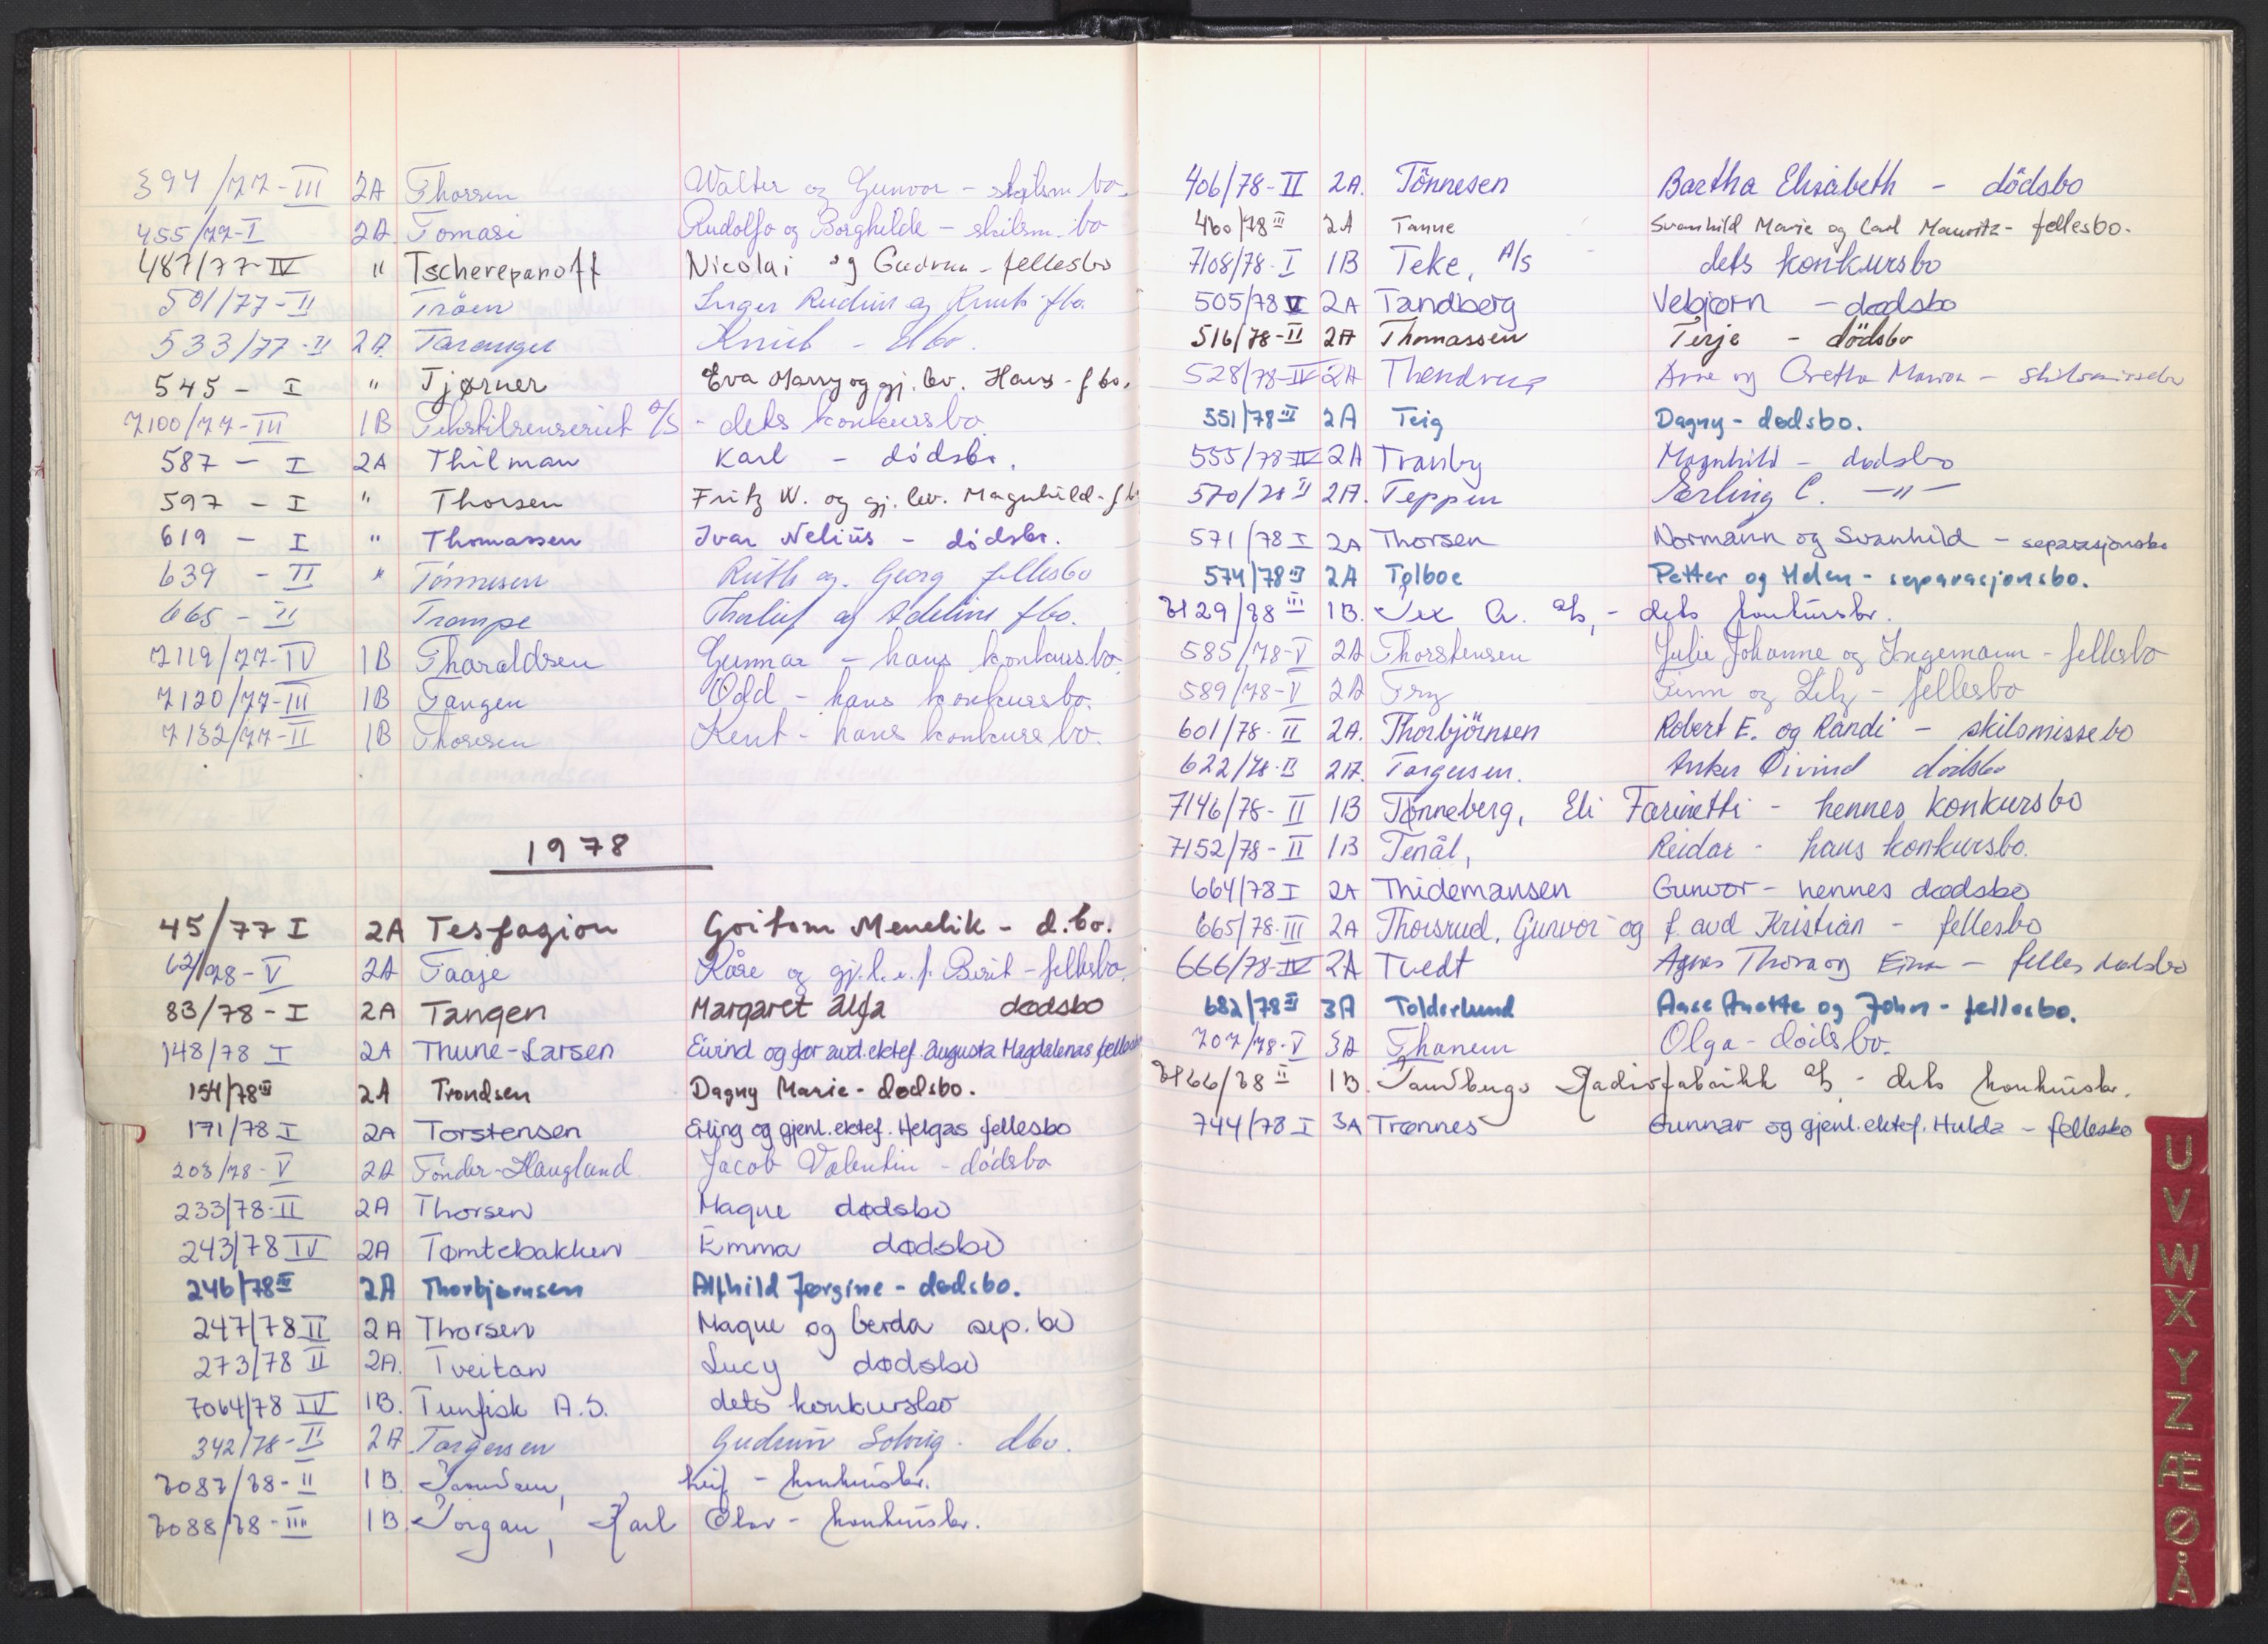 394/77-III 2A Thorsen Walter og Gunvor - skilsm. bo
455/77-I 2A Tomasi Rudolfo og Borghilde - skilsm. bo
487/77-IV " Tscherepanoff Nicolai og Gudrun - fellesbo
501/77-II Tråen Inger og Knut fbo.
533/77-II 2A Taranger Knut - dbo.
545 - I " Tjørner Eva Marry og gj. lev. Hans - fbo.
7100/77-III 1B Tekstilrenseriet A/S - dets konkursbo
587 - I 2A Thilman Karl - dødsbo.
597 - I " Thorsen Fritz W. og gj. lev. Magnhild - fb
619 - I " Thomassen Ivar Nelius - dødsbo.
639 - II " Tønnesen Ruth og Georg fellesbo
665 - II Trampe Thorleif og Adeline fbo.
7119/77-IV 1B Tharaldsen Gunnar - hans konkursbo
7120/77-III 1B Tangen Odd - hans konkursbo.
7132/77-II 1B Thoresen Kent - hans konkursbo.
1978
45/77 I 2A Tesfagion Goitom Menelik - d.bo.
62/78-V 2A Taaje Kåre og gj.l.e.f. Berit - fellesbo.
83/78-I 2A Tangen Margaret Alfa dødsbo
148/78 I 2A Thune-Larsen Eivind og før avd. ektef. Augusta Magdalenas felles
154/78 III 2A Trondsen Dagny Marie - dødsbo.
171/78 I 2A Torstensen Erling og gjenl. ektef. Helgas fellesbo
203/78-V 2A Tønder-Haugland Jacob Valentin - dødsbo
233/78-II 2A Thorsen Magne dødsbo
243/78 IV 2A Tømtebakken Emma dødsbo
246/78 III 2A Thorbjørnsen Alfhild Jørgine - dødsbo.
247/78 II 2A Thorsen Magne og Gerda sep. bo
273/78 II 2A. Tveitan Lucy dødsbo
7064/78 IV 1B. Tunfisk A.S. dets konkursbo
342/78-II 2A Torgersen Gudrun Solveig. dbo.
7087/78-II 1B. Leif - konkursbo.
7088/78-III 1B. Torgau, Karl Olav - konkursbo.
406/78-II 2A. Tönnesen Bartha Elisabeth - dödsbo
460/78 III 2A Tanne Svanhild Marie og Carl Mauritz - fellesbo.
7108/78-I 1B Teke, A/S dets konkursbo
505/78 V 2A Tandberg Vebjørn - dødsbo
516/78-II 2A Thomassen Terje - dödsbo
528/78-IV 2A Thendrup Arne og Grethe Marion - skilsmissebo
551/78 III 2A Teig Dagny - dødsbo.
555/78-IV 2A Tranby Magnhild - dødsbo
570/78 II 2A. Teppen Erling C. - " -
571/78 I 2A Thorsen Normann og Svanhild - separasjonsbo
574/78 III 2A Tolboe Petter og Helen - separasjonsbo.
7129/78 III 1B. Tex A. A/S, - dets konkursbo.
585/78-V 2A Thorstensen Julie Johanne og Ingemann - fellesbo
589/78-V 2A Try Finn og Lily - fellesbo
601/78-II 2A. Thorbjörnsen Robert E. og Randi - skilsmissebo
622/78-II 2A. Torgersen. Anker Øivind dødsbo
7146/78-II 1B Tønneberg, Eli Farinetti - hennes konkursbo
7152/78-II 1B Tenål, Reidar - hans konkursbo.
664/78 I 2A Thidemansen Gunvor - hennes dødsbo
665/78-III 2A Thorsrud, Gunvor og f. avd Kristian - fellesbo
666/78-IV 2A Tvedt Agnes Thora og Einar - felles dødsbo
682/78 III 3A Tolderlund Aase Anette og John - fellesbo.
707/78-V 3A Thanem Olga - dødsbo.
7166/78 II 1B. Tandbergs Radiofabrikk A/S - dets konkursbo.
744/78 I 3A Trønnes Gunnar og gjenl. ektef. Hulda - fellesbo
U
V
W
X
Y
Z
Æ
Ø
Å